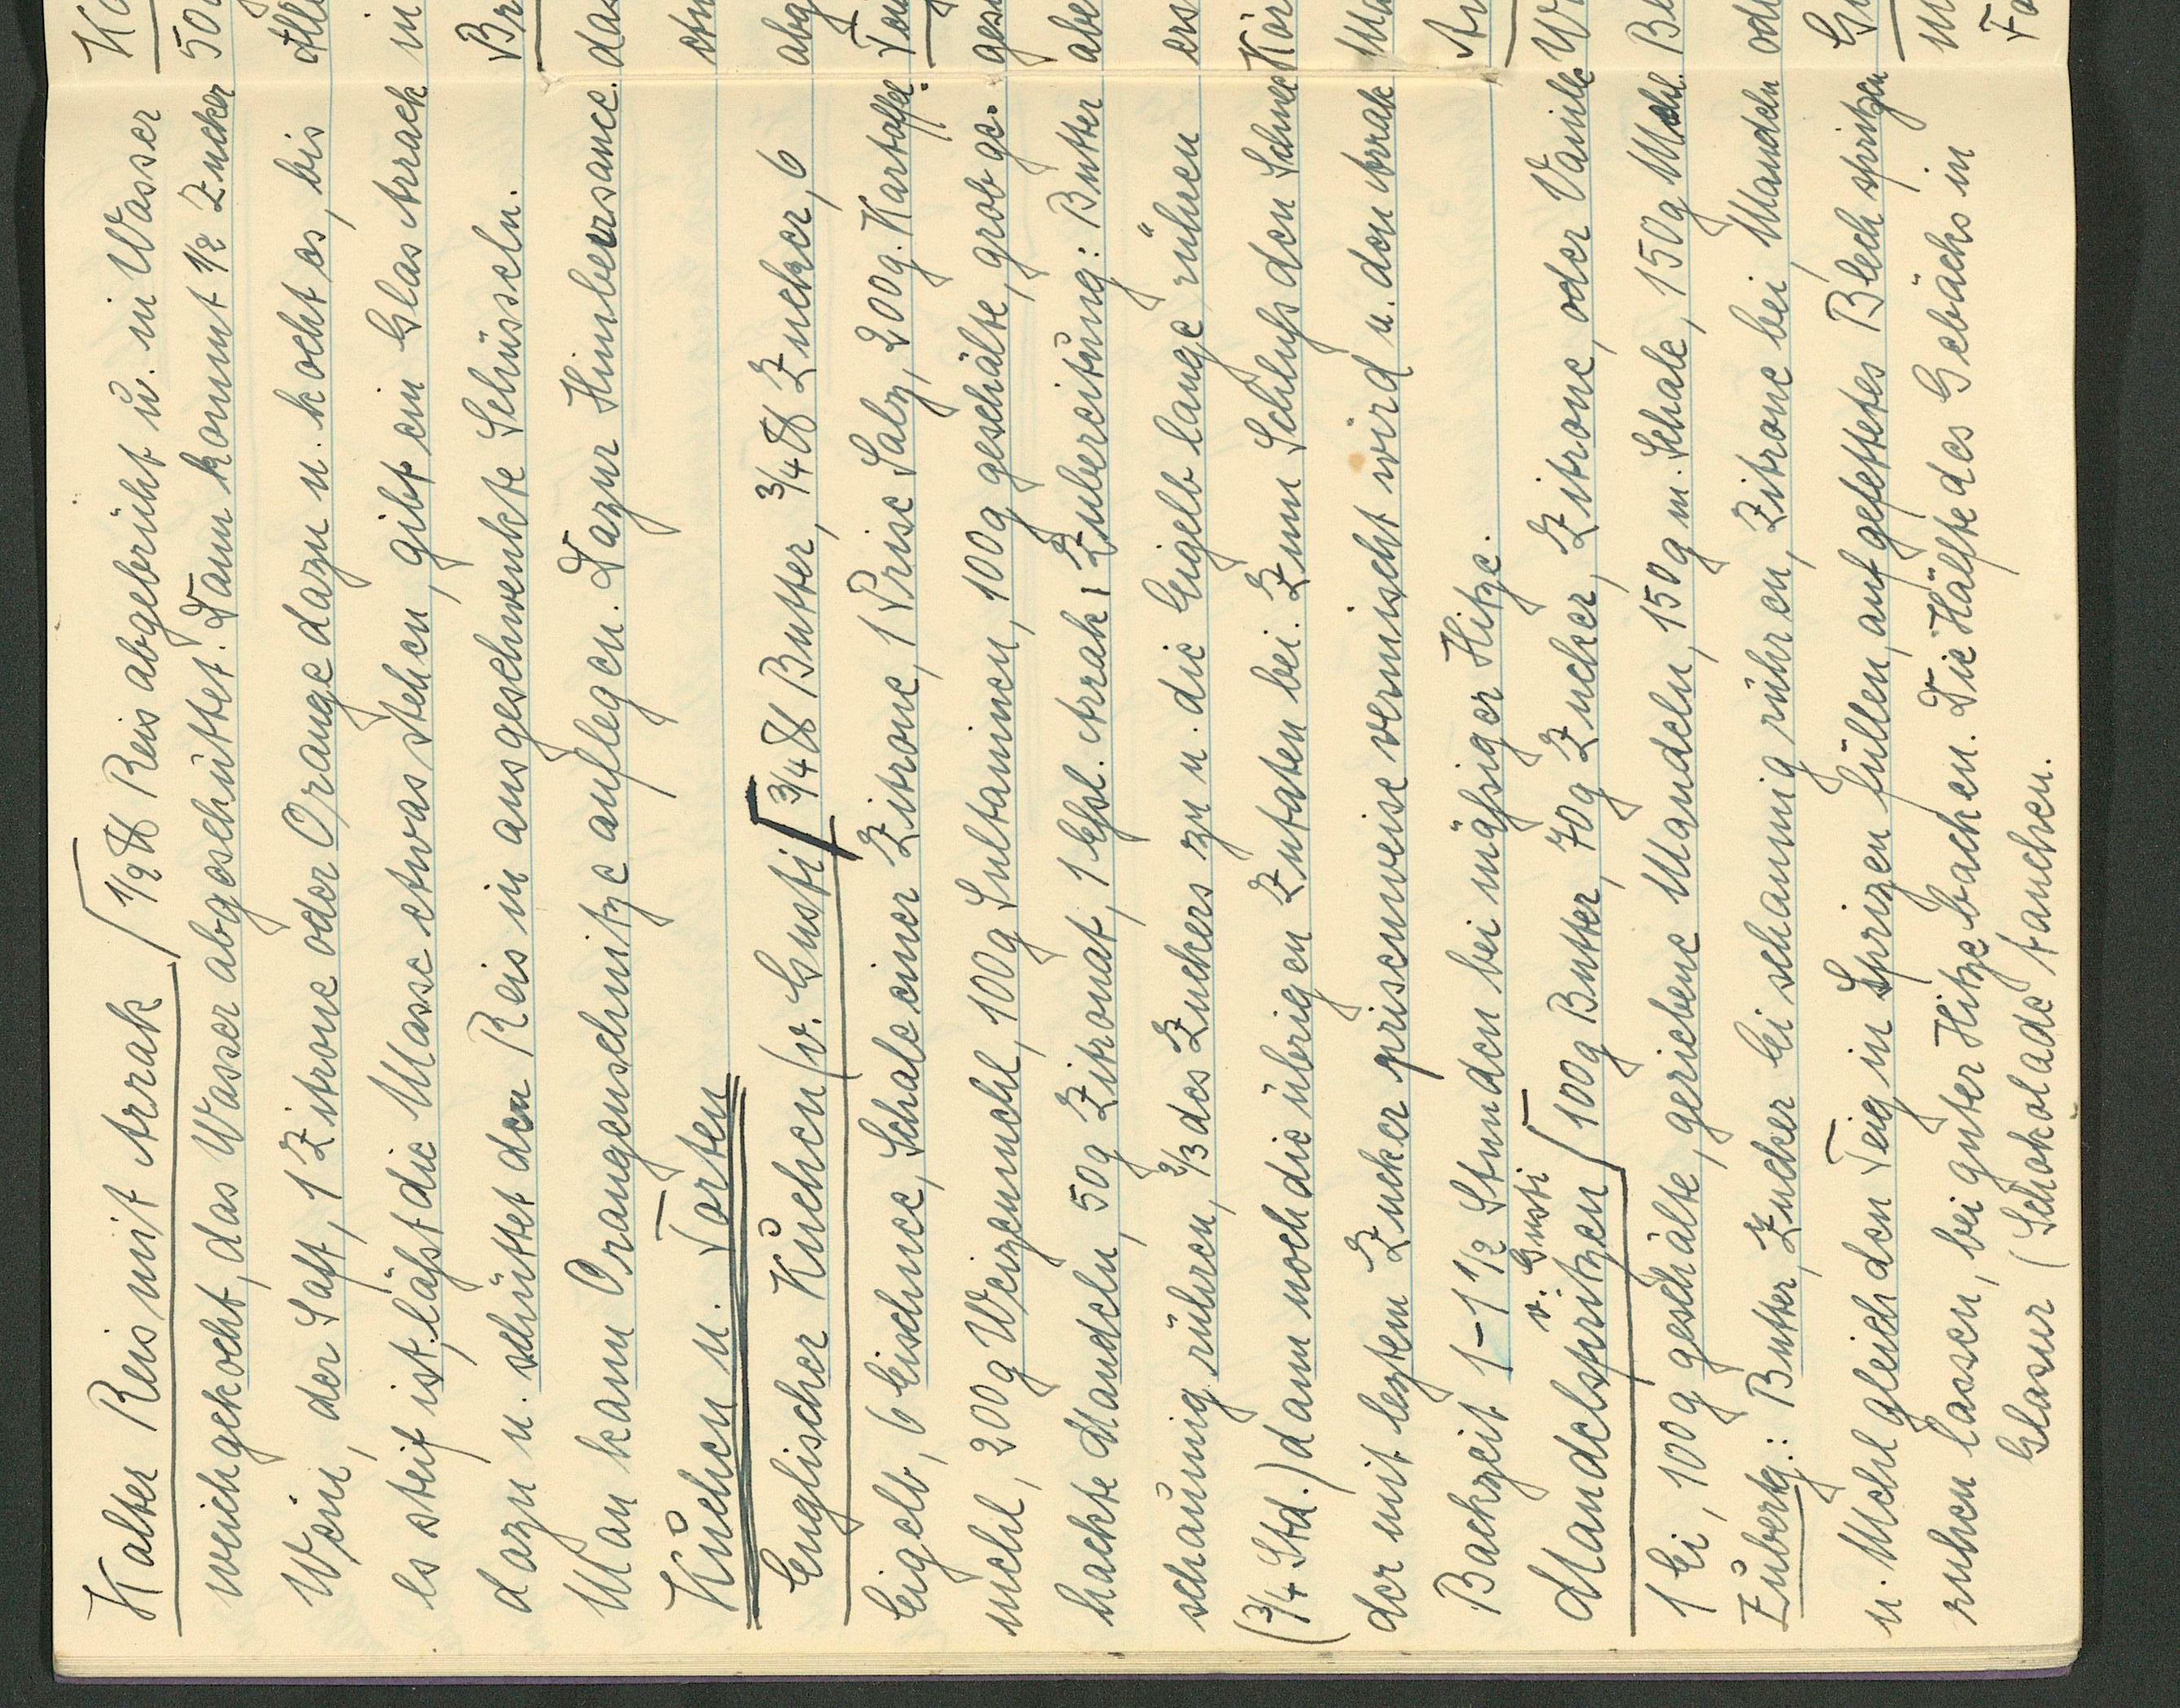 Kalter Reis mit Arrak 1/2 ℔ Reis abgebrüht u. in Wasser
weichgekocht, das Wasser abgeschüttet. Dann kommt 1/2 Zucker
Wein, der Saft, 1 Zitrone oder Orange dazu u. kocht es, bis
es steif ist, läßt die Masse etwas stehen, gibt ein Glas Arrack
dazu u. schüttet den Reis in ausgeschwenkte Schüsseln.
Man kann Orangenschnitze auflegen. Dazu Himbeersauce.
Kuchen u. Torten
Englischer Kuchen (v. Gusti) 3/4 ℔ Butter, 3/4 ℔ Zucker, 6
Eigelb, 6 Eischnee, Schale einer Zitrone, 1 Prise Salz, 200g. Kartoffel-
mehl, 200g Weizenmehl, 100g Sultaninen, 100g geschälte, grob ge-
hackte Mandeln, 50g Zitronat, 1 Eßl. Arrak, Zubereitung: Butter
schaumig rühren, 2/3 des Zuckers zu u. die Eigelb lange rühren
(3/4 Std.) dann noch die übrigen Zutaten bei. Zum Schluß den Schnee
der mit leztem Zucker prisenweise vermischt wird u. den Arrak
Backzeit 1-1 1/2 Stunden bei mäßiger Hitze.
v. Gusti
Mandelspritzen 100g Butter, 70g Zucker, Zitrone, oder Vanille
1 Ei, 100g geschälte, geriebene Mandeln, 150g m. Schale, 150g Mehl.
Zubertg.: Butter, Zucker Ei schaumig rühren, Zitrone bei, Mandeln
u. Mehl gleich den Teig in Sprizen füllen, auf gefettetes Blech spritzen
ruhen lassen, bei guter Hitze backen. Die Hälfte des Gebäcks in
Glasur (Schokolade tauchen.